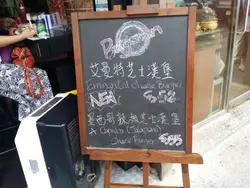 艾曼特芝士漢堡
Emmental cheese Burger
NEW $52
墨西哥辣椒芝士漢堡
Cheese Burger
$55